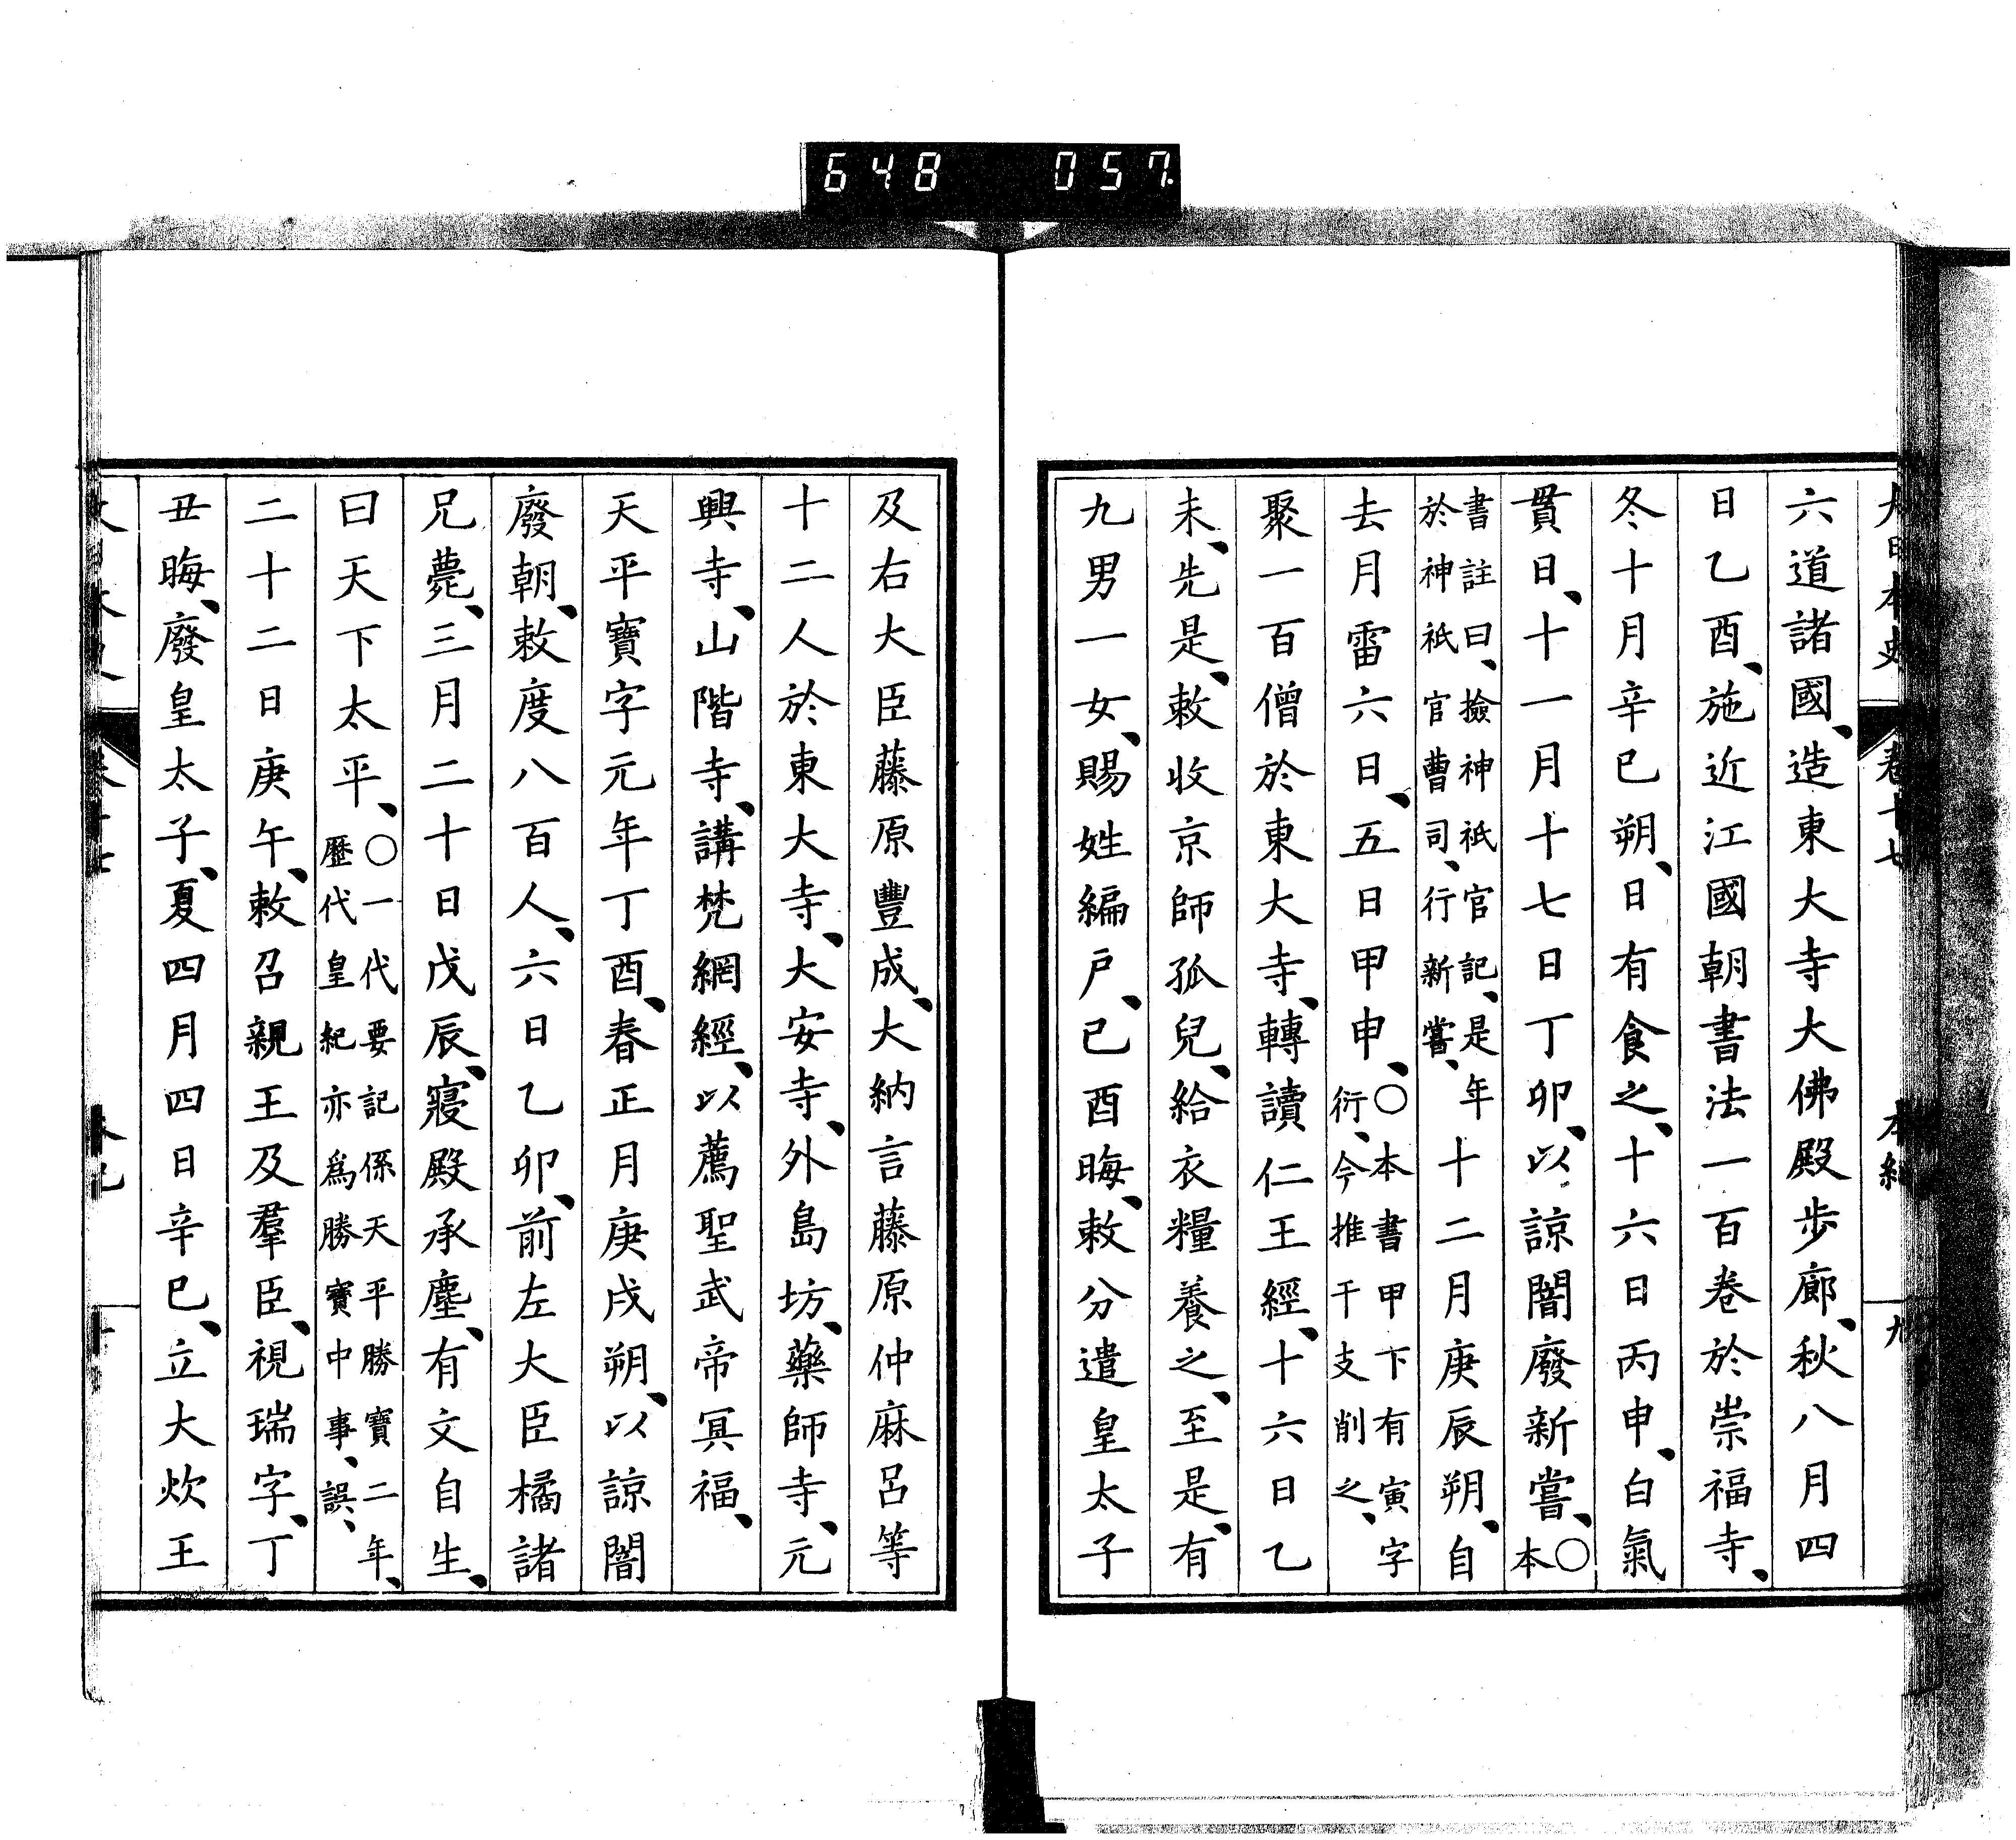 648 057
大日本史 卷十七 本紀 九
六道諸國、造東大寺大佛殿步廊、秋八月四
日乙酉、施近江國朝書法一百卷於崇福寺、
冬十月辛巳朔、日有食之、十六日丙申、白氣
貫日、十一月十七日丁卯、以諒闇廢新嘗、〇本
書註曰、撿神祇官記、是年於神祇官曹司、行新嘗、十二月庚辰朔、自
去月雷六日、五日甲申、〇本書甲下有寅字衍、今推干支削之、
聚一百僧於東大寺、轉讀仁王經、十六日乙
未、先是、敕收京師孤兒、給衣糧養之、至是、有
九男一女、賜姓編戶、已酉晦、敕分遣皇太子
及右大臣藤原豐成、大納言藤原仲麻呂等
十二人於東大寺、大安寺、外島坊、藥師寺、元
興寺、山階寺、講梵網經、以薦聖武帝冥福、
天平寶字元年丁酉、春正月庚戌朔、以諒闇
廢朝、敕度八百人、六日乙卯、前左大臣橘諸
兄薨、三月二十日戊辰、寢殿承塵、有文自生、
曰天下太平、〇一代要記係天平勝寶二年、歷代皇紀亦爲勝寶中事、誤、
二十二日庚午、敕召親王及羣臣、視瑞字、丁
丑晦、廢皇太子、夏四月四日辛巳、立大炊王